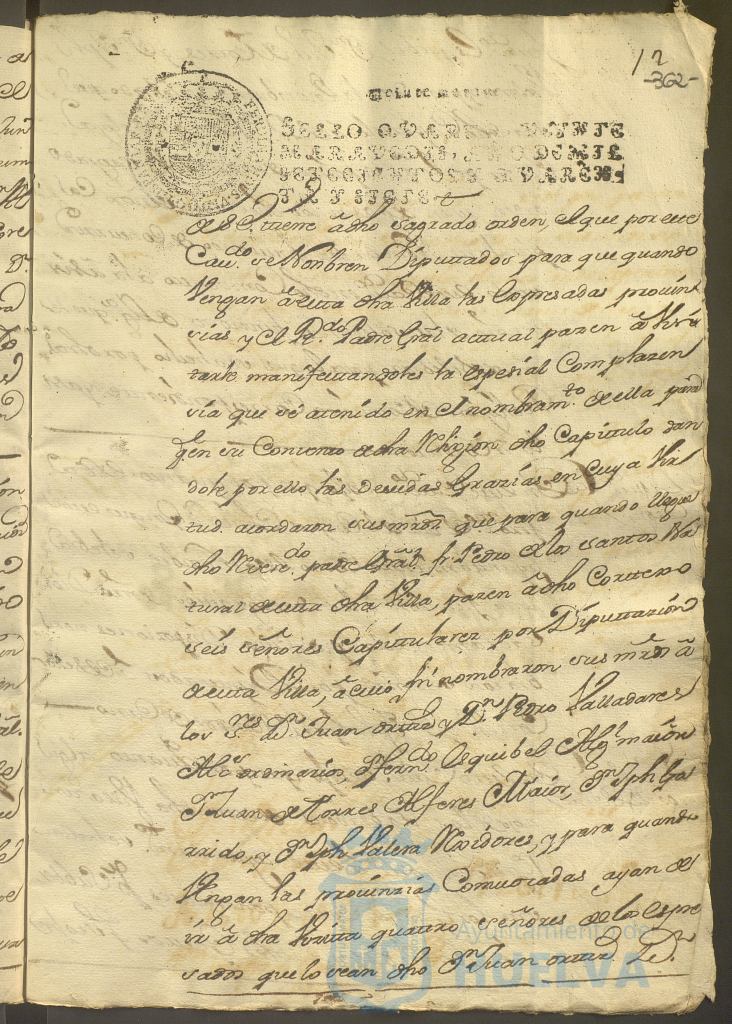 12
-362-
Veinte maravedis
SELLO QVARTO, VEINTE
MARAVEDIS, AÑO DE MIL
SETECIENTOS Y QVAREN
TA Y SIETE
tiene â dho sagrado orden, el que por este
Cav.do se Nonbren Diputtados para que quando
Vengan â esta dha Villa las Expresadas provin
sias y el R.do Padre Gràl actual pasen â Visi
tarle manifestandoles la espesial Complasen
sia que sè atenido en el nombram.to de ella para
q̃ en su Convento de dha Religion dho Capitulo dan
dole por ello las devidas Grazias, en Cuya Vir
tud acordaron sus mr̃dS que para quando llegue
dho Rvere.do padre Gràl fr Pedro de los santos Na
tural de esta dha Villa, pasen â dho Convento
seis señores Capitulares por Diputtazion
de esta Villa, â cuio fin nombraron sus mr̃ds â
los S.res D.n Juan ortiz y D.n Pedro Valladares
Alc.s ordinarios, D.n fern.do Esquibel Alg.l maior
D.n Juan de Torres Alferes Maior, D.n Jph Ga
rrido, y D.n Jph Valera Rexidores, y para quando
Vengan las provinzias Comvocadas ayan de
ir â dha Visita quatro señores de los espre
sados que lo sean dho D.n Juan ortiz D.n
Ayuntamiento de
HUELVA